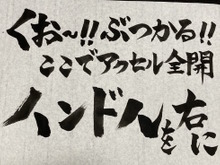 くお~!!ぶつかる!!
ここでアクセル全開
ハンドルを右に